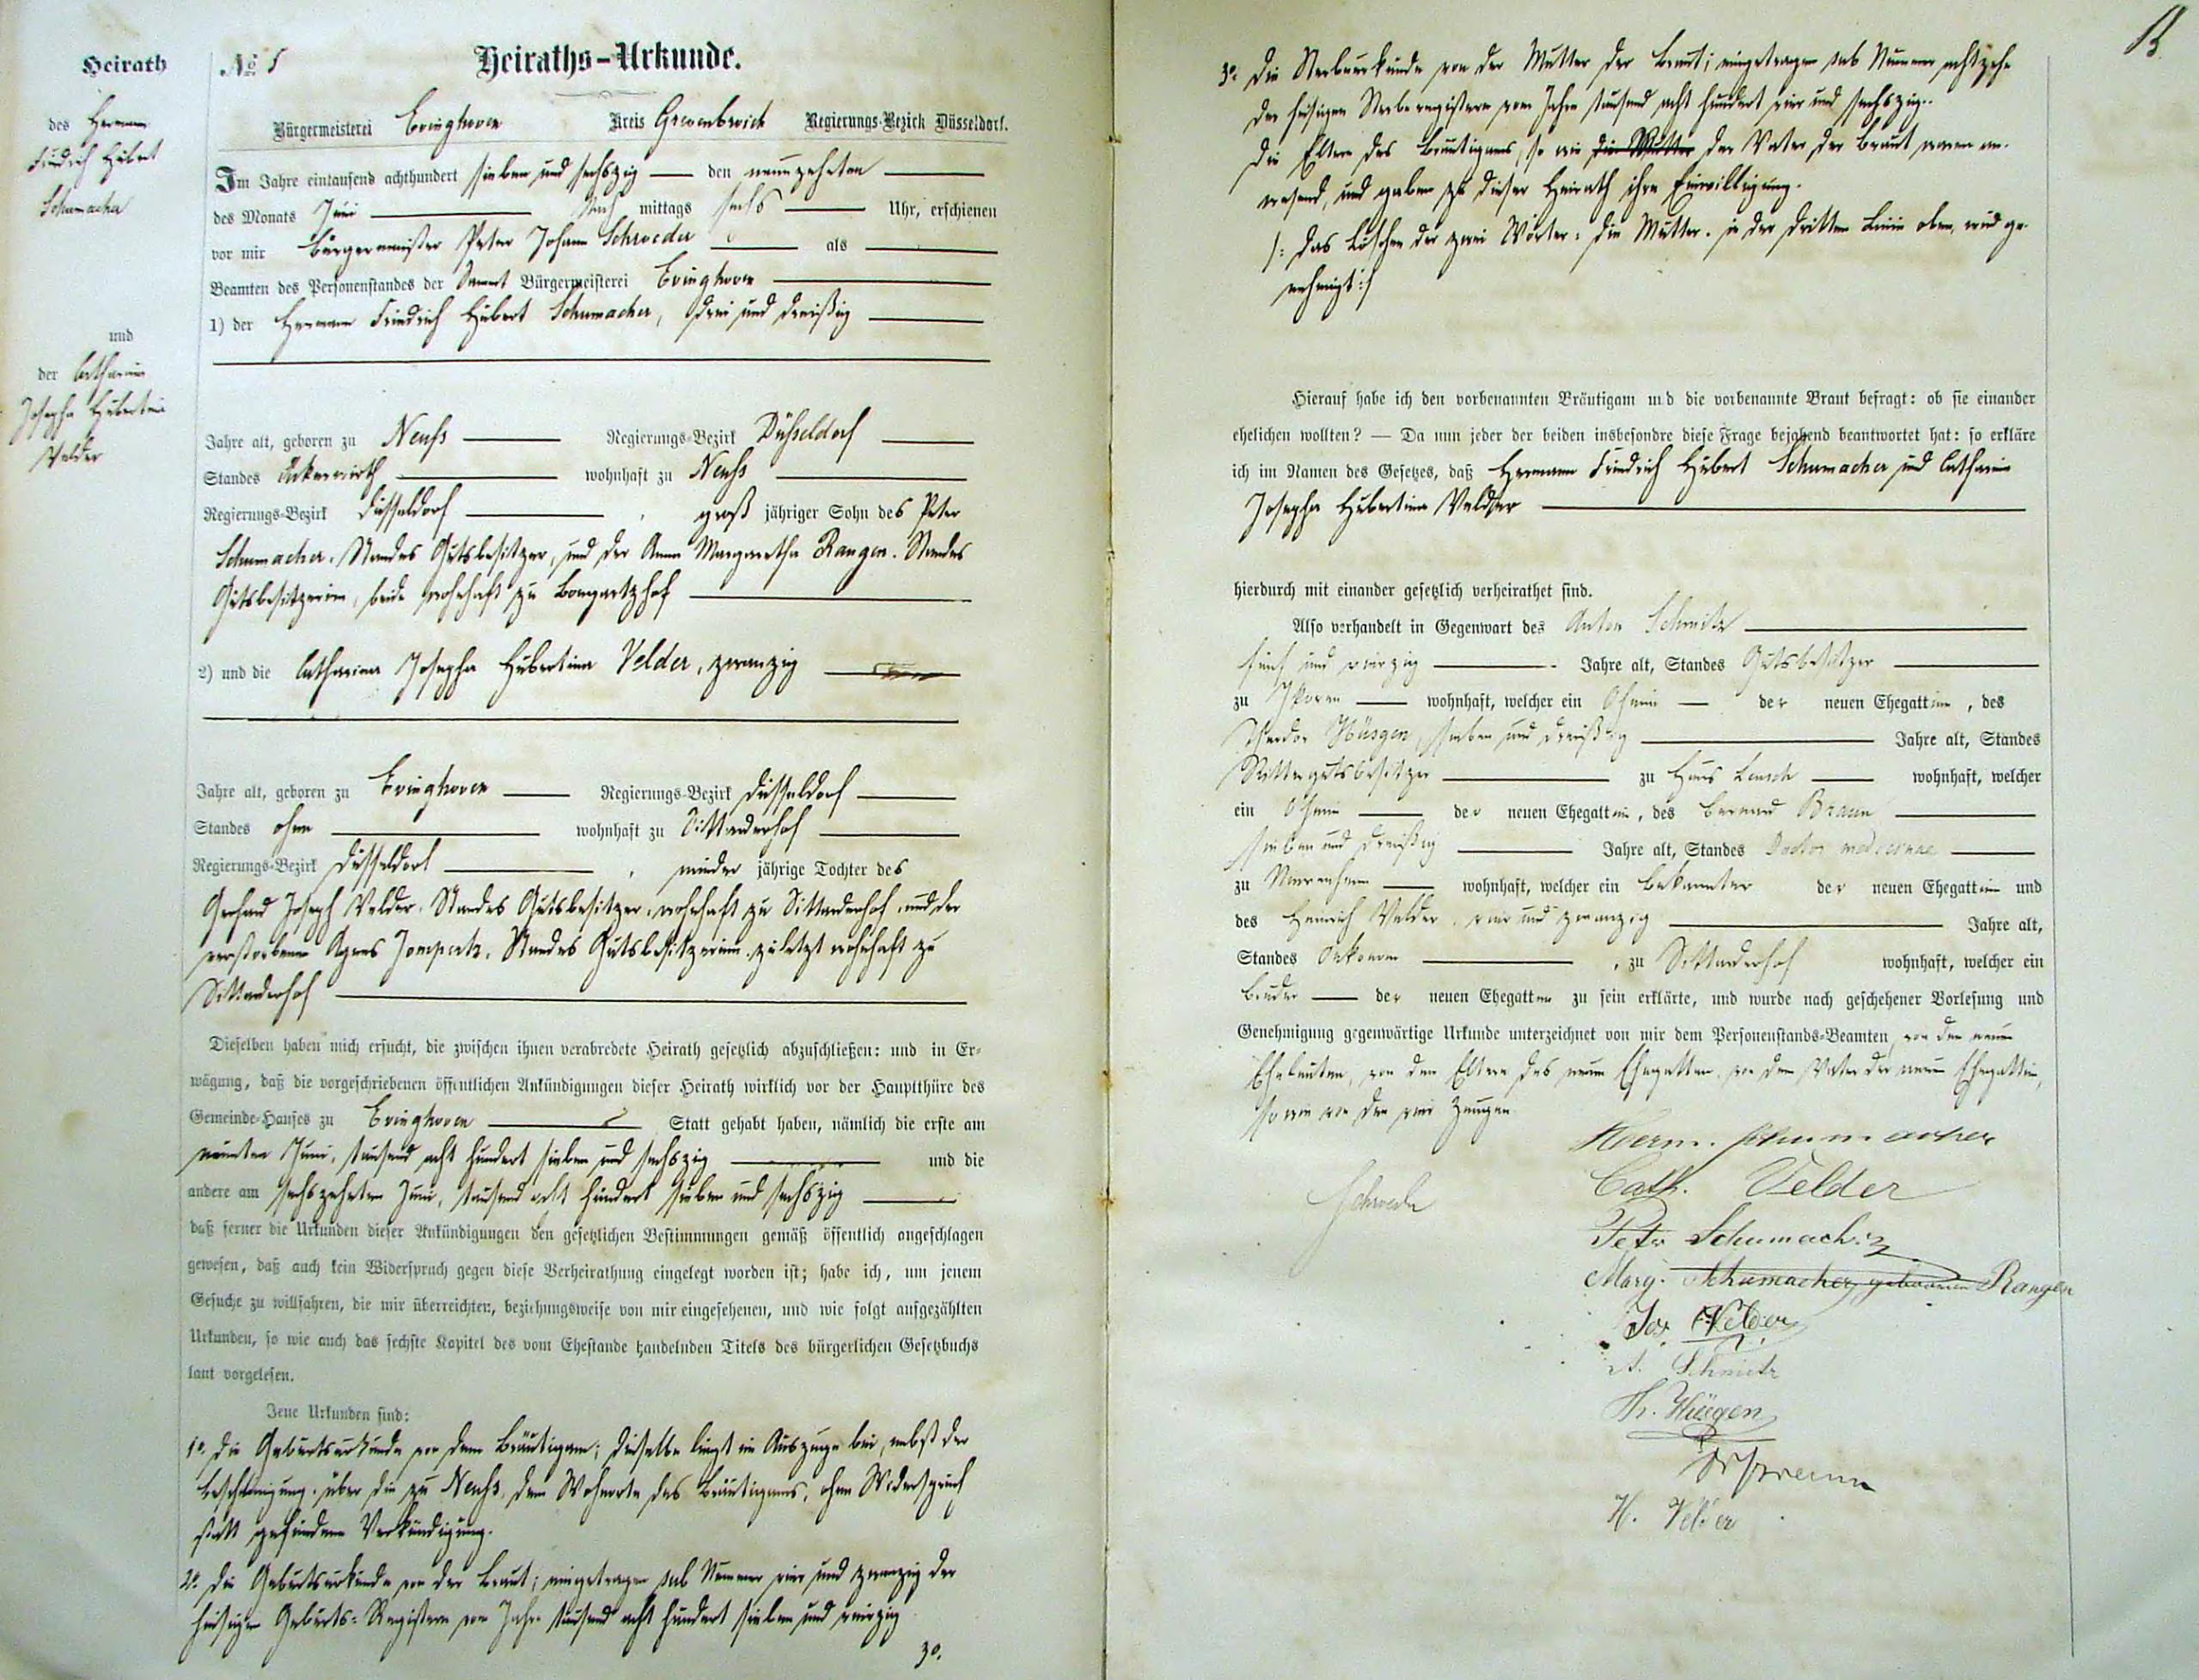 Heirath
des Hermann
Friedrich Hubert
Schumacher
und
der Catharina
Josepha Hubertina
Velder
No 5
Heiraths-Urkunde.
Bürgermeisterei Evinghoven Kreis Grevenbroich Regierungs-Bezirk Düsseldorf.
Im Jahre eintausend achthundert sieben und sechszig den neunzehnten
des Monats Juni Nach mittags sechs Uhr, erschienen
vor mir Bürgermeister Peter Johann Schroeder als
Beamten des Personenstandes der Sammt Bürgermeisterei Evinghoven
1) der Hermann Friedrich Hubert Schumacher, drei und dreißig
Jahre alt, geboren zu Neuss Regierungs-Bezirk Düsseldorf
Standes Ackerwirth wohnhaft zu Neuss
Regierungs-Bezirk Düsseldorf, groß jähriger Sohn des Peter
Schumacher, Standes Gutsbesitzer, und der Anna Margaretha Rangen, Standes
Gutsbesitzerin, beide wohnhaft zu Bongartzhof
2) und die Catharina Josepha Hubertina Velder, zwanzig
Jahre alt, geboren zu Evinghoven Regierungs-Bezirk Düsseldorf
Standes ohne wohnhaft zu Sittarderhof
Regierungs-Bezirk Düsseldorf, minder jährige Tochter des
Gerhard Joseph Velder, Standes Gutsbesitzer, wohnhaft zu Sittarderhof, und der
verstorbenen Agnes Jompertz, Standes Gutsbesitzerin, zuletzt wohnhaft zu
Sittarderhof
Dieselben haben mich ersucht, die zwischen ihnen verabredete Heirath gesetzlich abzuschließen: und in Er-
wägung, daß die vorgeschriebenen öffentlichen Ankündigungen dieser Heirath wirklich vor der Hauptthüre des
Gemeinde-Hauses zu Evinghoven Statt gehabt haben, nämlich die erste am
neunten Juni, tausend acht hundert sieben und sechszig und die
andere am sechszehnten Juni, tausend acht hundert sieben und sechszig
daß ferner die Urkunden dieser Ankündigungen den gesetzlichen Bestimmungen gemäß öffentlich angeschlagen
gewesen, daß auch kein Widerspruch gegen diese Verheirathung eingelegt worden ist; habe ich, um jenem
Gesuche zu willfahren, die mir überreichten, beziehungsweise von mir eingesehenen, und wie folgt aufgezählten
Urkunden, so wie auch das sechste Kapitel des vom Ehestande handelnden Titels des bürgerlichen Gesetzbuchs
laut vorgelesen.
Jene Urkunden sind:
1o. die Geburtsurkunde von dem Bräutigam; dieselbe liegt im Auszuge bei, nebst der
Bescheinigung über die zu Neuss, dem Wohnorte des Bräutigams, ohne Widerspruch
statt gefundene Verkündigung.
2o. die Geburtsurkunde von der Braut; eingetragen sub Nummer vier und zwanzig der
hiesigen Geburts-Registern vom Jahre tausend acht hundert sieben und vierzig
3o.
3o. die Sterbeurkunde von der Mutter der Braut; eingetragen sub Nummer achtzehn
der hiesigen Sterberegistern vom Jahre tausend acht hundert vier und sechszig.
Die Eltern des Bräutigams, so wie die Mutter der Vater der Braut waren an-
wesend, und gaben zu dieser Heirath ihre Einwilligung.
/: das Löschen der zwei Wörter: die Mutter. in der dritten Linie oben, wird ge-
nehmigt :/
Hierauf habe ich den vorbenannten Bräutigam und die vorbenannte Braut befragt: ob sie einander
ehelichen wollten? — Da nun jeder der beiden insbesondre diese Frage bejahend beantwortet hat: so erkläre
ich im Namen des Gesetzes, daß Hermann Friedrich Hubert Schumacher und Catharina
Josepha Hubertina Velder
hierdurch mit einander gesetzlich verheirathet sind.
Also verhandelt in Gegenwart des Anton Schmitz
fünf und vierzig Jahre alt, Standes Gutsbesitzer
zu wohnhaft, welcher ein Oheim der neuen Ehegattinn, des
Theodor Hüsgen, sieben und dreißig Jahre alt, Standes
Rittergutsbesitzer zu Haus wohnhaft, welcher
ein Oheim der neuen Ehegattin, des Bernard Braun
sieben und dreißig Jahre alt, Standes Doctor medicinae
zu wohnhaft, welcher ein Bekannter der neuen Ehegattinn und
des Heinrich Velder, vier und zwanzig Jahre alt,
Standes Oekonom, zu Sittarderhof wohnhaft, welcher ein
Bruder der neuen Ehegattinn zu sein erklärte, und wurde nach geschehener Vorlesung und
Genehmigung gegenwärtige Urkunde unterzeichnet von mir dem Personenstands-Beamten, von den neuen
Eheleuten, von den Eltern des neuen Ehegatten, von dem Vater der neuen Ehegattin,
so wie von den vier Zeugen
Herm. Schumacher
Cath. Velder
Schroeder
Peter Schumacher
Marg. Schumacher geborene Rangen
Jos Velder
A. Schmitz
Th. Hüsgen
Dr Braun
H. Velder